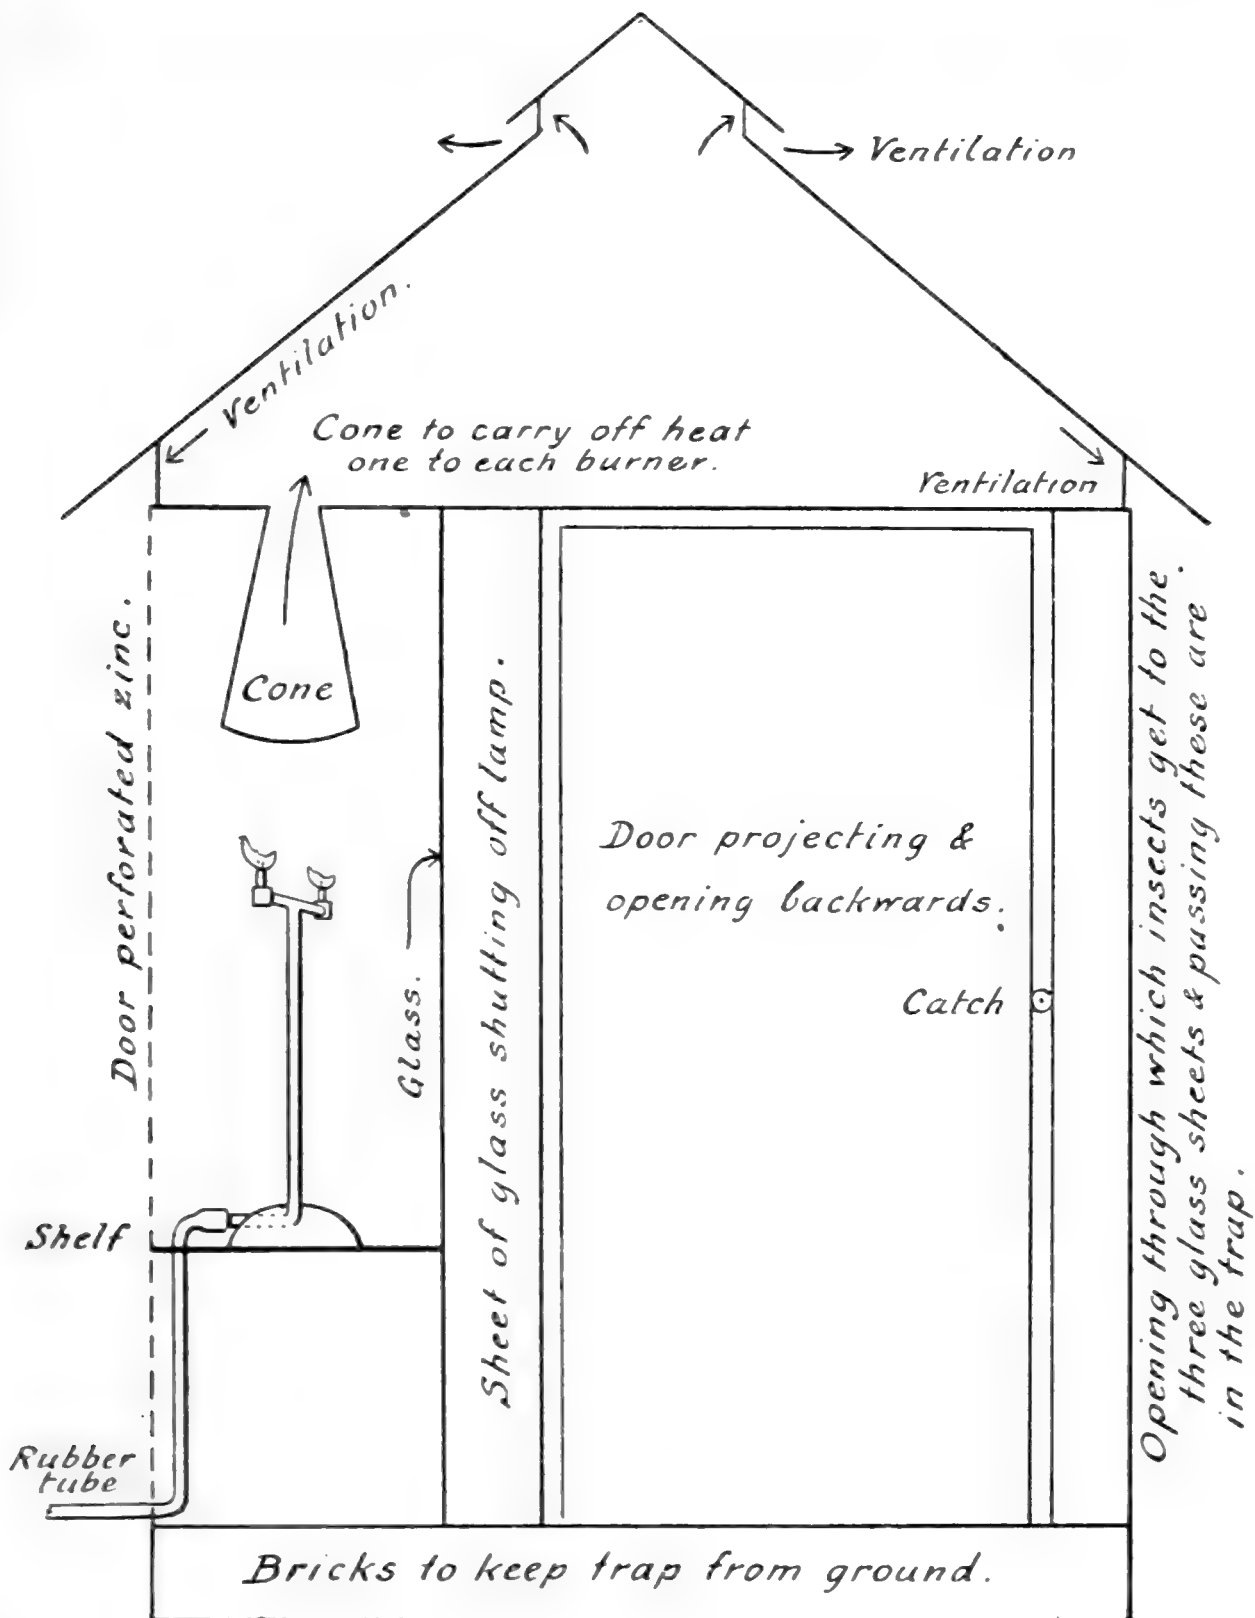 Ventilation
Ventilation.
Cone to carry off heat
one to each burner.
Ventilation
Door perforated zinc.
Cone
Glass.
Sheet of glass shutting off lamp.
Door projecting &
opening backwards.
Catch
Opening through which insects get to the
three glass sheets & passing these are
in the trap.
Shelf
Rubber
tube
Bricks to keep trap from ground.